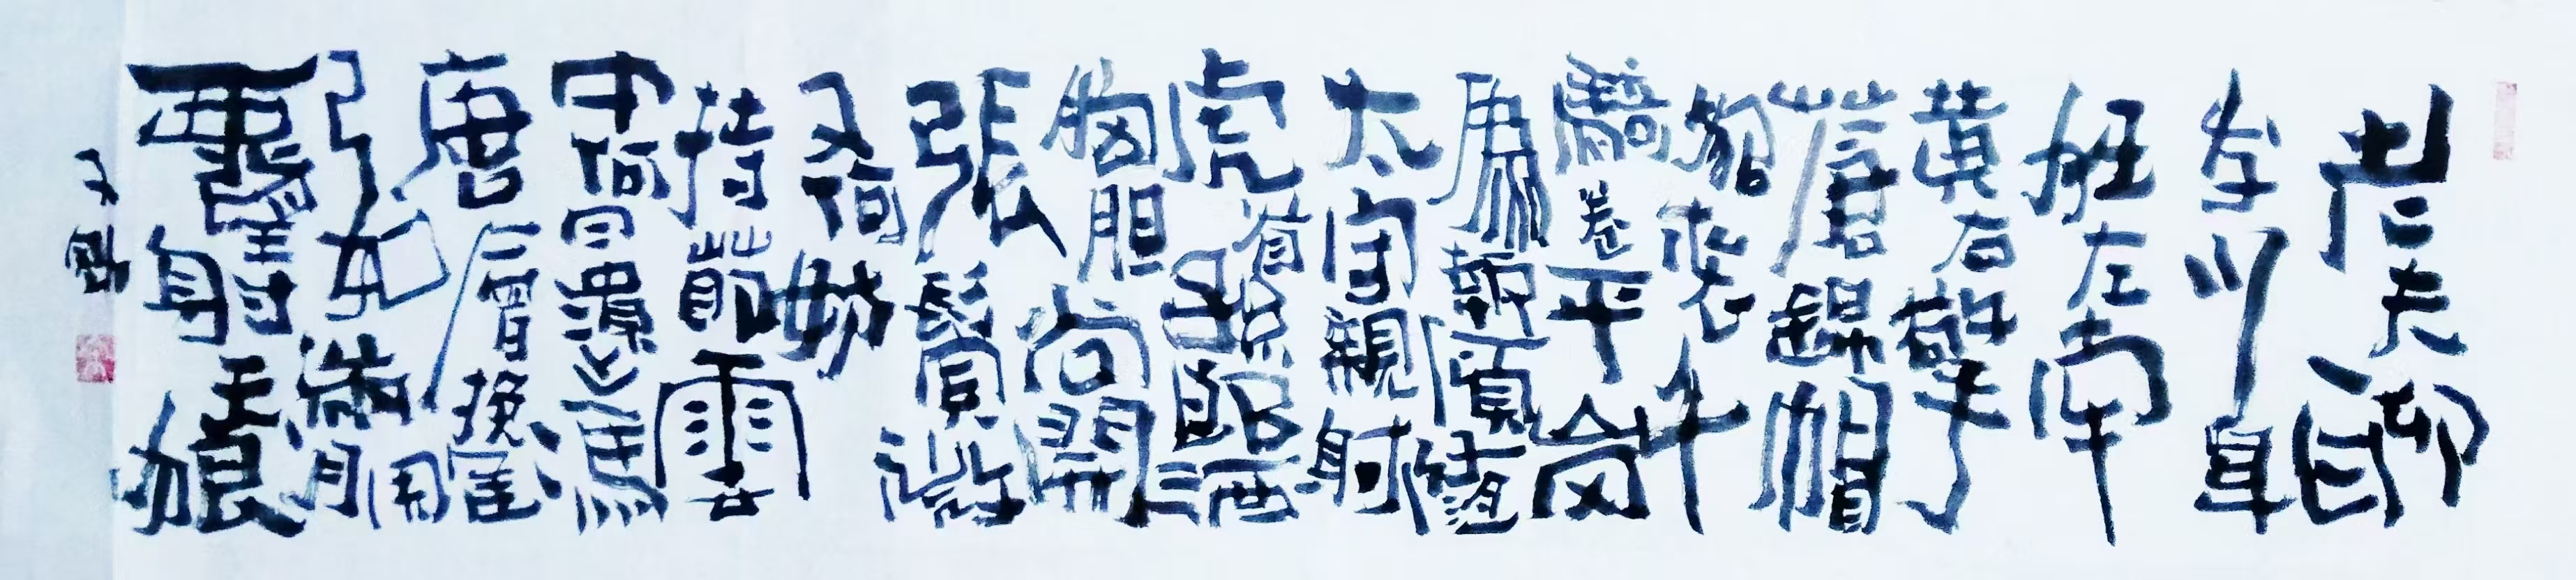 老夫聊
发少年
狂左牵
黄右擎
苍錦帽
貂裘千
騎卷平岗
為報傾城隨
太守親射
虎看孫郎酒酣
胸胆尚開
張鬢微霜
又何妨
持節雲
中何日遣馮
唐會挽雕
弓如滿月
西北望射天狼